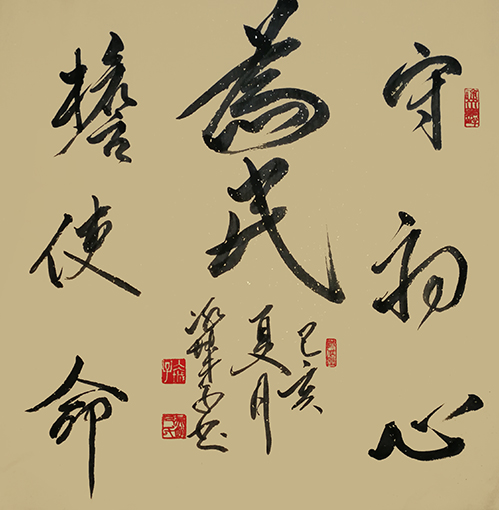 守初心
為民
擔使命
己亥
夏月